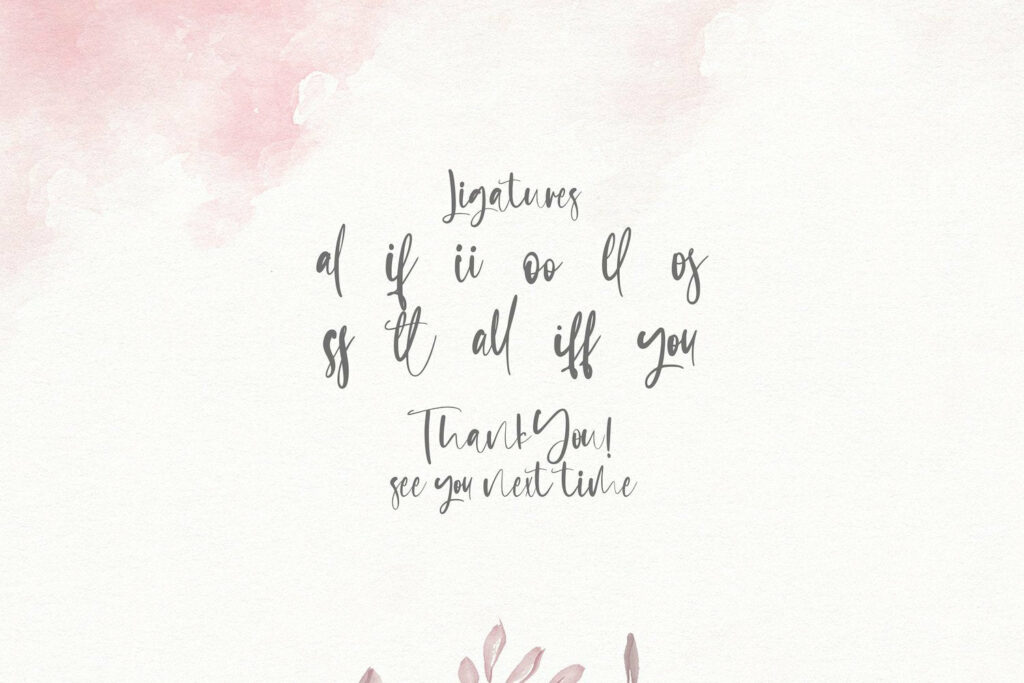 Ligatures
al if ii oo ll os
ss tt all iff you
Thank You!
see you next time